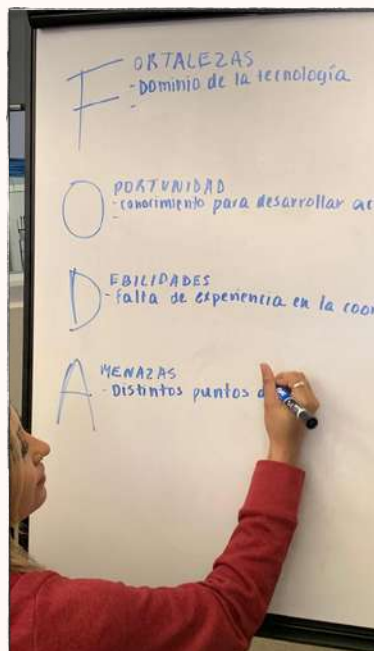 FORTALEZAS
- Dominio de la tecnología
-
OPORTUNIDAD
- conocimiento para desarrollar
-
DEBILIDADES
- falta de experiencia en la
AMENAZAS
- Distintos puntos